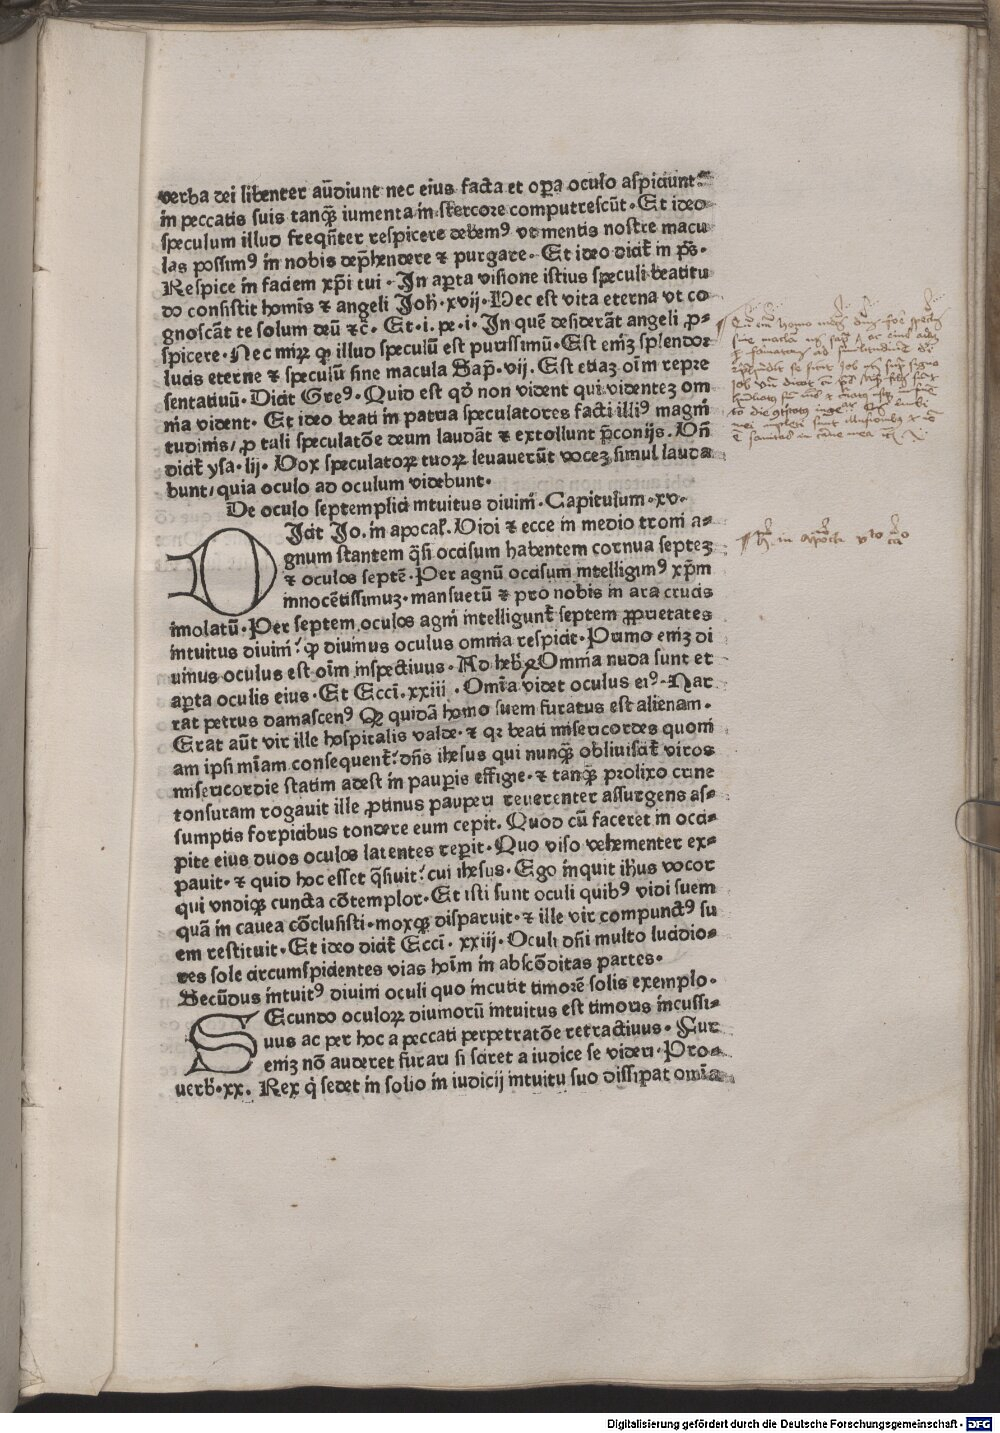 verba dei libenter audiunt nec eius facta et oꝑa oculo aspiciunt
in peccatis suis tanqꝫ iumenta in stercore computrescūt · Et ideo
speculum illud freqn̄ter respicere debemꝰ vt mentis nostre macu
las possimꝰ in nobis dep̄hendere ⁊ purgare · Et ideo dicit̄ in p̄s ·
Respice in faciem xp̄i tui · In aꝑta visione istius speculi beatitu
do consistit homīs ⁊ angeli Joh̄ · xvij · Hec est vita eterna vt co
gnoscāt te solum deū ⁊c̄ · Et · i · pe · i · In quē desiderāt angeli ꝓ-
spicere · Nec miꝝ qꝫ illud speculū est purissimū · Est eniꝫ splendor
lucis eterne ⁊ speculū sine macula Sap̄ · vij · Est etiaꝫ oīm repre
sentatiuū · Dicit Greꝰ · Quid est qō non vident qui videnteꝫ om
nīa vident · Et ideo beati in patria speculatores facti illiꝰ magni
tudinis / ꝓ tali speculatōe deum laudāt ⁊ extollunt p̄conijs · Vn̄
dicit̄ ysa · lij · Vox speculatoꝝ tuoꝝ leuauerūt voceꝫ simul lauda
bunt / quia oculo ad oculum videbunt ·
De oculo septemplici intuitus diuini · Capitulum · xv ·
DIcit Jo. in apocal̄ · Vidi ⁊ ecce in medio troni a-
gnum stantem qͣsi occisum habentem cornua septeꝫ
⁊ oculos septē · Per agnū occisum intelligimꝰ xp̄m
innocētissimuꝫ · mansuetū ⁊ pro nobis in ara crucis
imolatū · Per septem oculos agni intelligunt̄ septem ꝓprietates
intuitus diuini · qꝫ diuinus oculus omnia respicit · Primo eniꝫ di
uinus oculus est oīm inspectiuus · Ad heb̄ꝝ Omnia nuda sunt et
aꝑta oculis eius · Et Ecci̅ · xxiii · Omīa videt oculus eiꝰ · Nar
rat petrus damascenꝰ Qꝫ quidā homo suem furatus est alienam ·
Erat aūt vir ille hospitalis valde · ⁊ qꝛ beati misericordes quoni
am ipsi mīam consequent̄ · dn̄s ihesus qui nunqꝫ obliuiscit̄ viros
misericordie statim adest in pauꝑis effigie · ⁊ tanqꝫ prolixo crine
tonsuram rogauit ille ꝓtinus pauperi reuerenter assurgens as-
sumptis forpicibus tondere eum cepit. Quod cū faceret in occi-
pite eius duos oculos latentes reꝑit · Quo viso vehementer ex-
pauit · ⁊ quid hoc esset qͣsiuit · cui ihesus · Ego inquit ih̄us vocor
qui vndiqꝫ cuncta cōtemplor · Et isti sunt oculi quibꝰ vidi suem
quā in cauea cōclusisti · moxqꝫ disparuit · ⁊ ille vir compunctꝰ su
em restituit · Et ideo dicit̄ Ecci̅ · xxiij · Oculi dn̄i multo lucidio-
res sole circumspicientes vias hoīm in abscōditas partes ·
Secūdus intuitꝰ diuini oculi quo incutit timorē solis exemplo ·
SEcundo oculoꝝ diuinorū intuitus est timoris incussi-
uus ac per hoc a peccati perpetratōe retractiuus · Fur
eniꝫ nō auderet furari si sciret a iudice se videri · Pro-
uerb̄ · xx · Rex qͥ sedet in solio in iudicij intuitu suo dissipat omīa
Digitalisierung gefördert durch die Deutsche Forschungsgemeinschaft - DFG